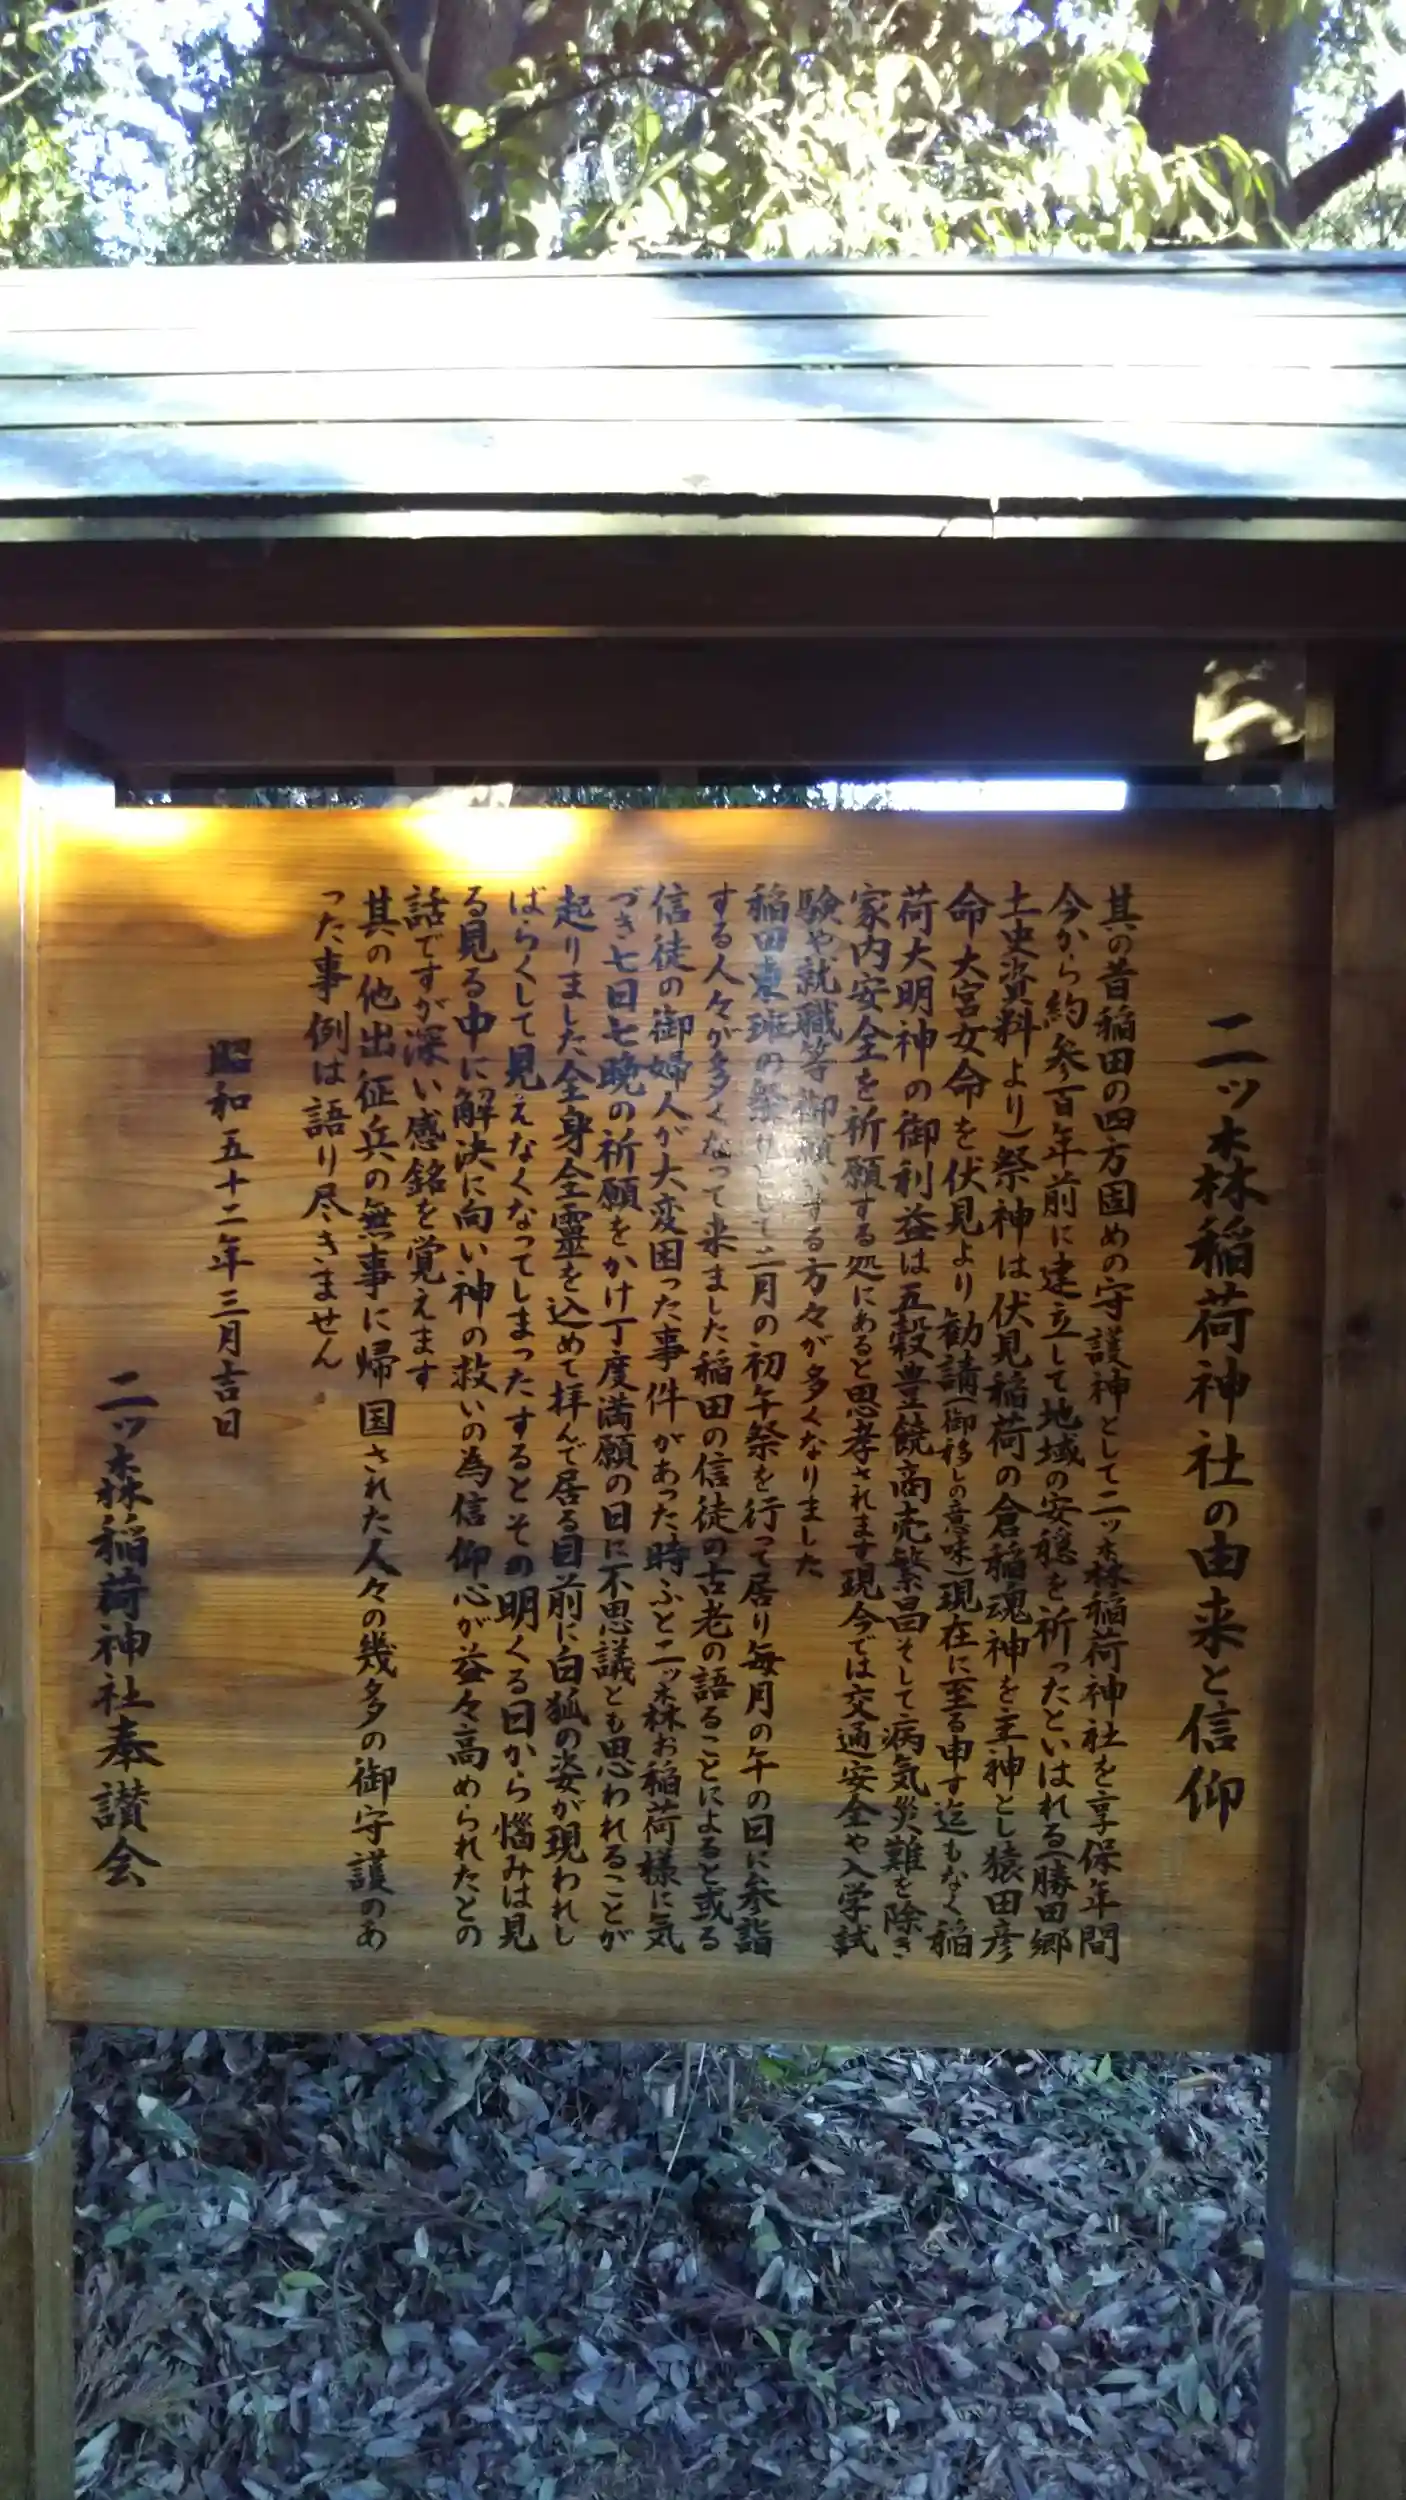 二ッ森稲荷神社の由来と信仰
其の昔稲田の四方固めの守護神として二ッ森稲荷神社を享保年間
今から約参百年前に建立して地域の安穏を祈ったといはれる(勝田郷
土史資料より)祭神は伏見稲荷の倉稲魂神を主神とし猿田彦
命大宮女命を伏見より勧請(御移しの意味)現在に至る申す迄もなく稲
荷大明神の御利益は五穀豊饒商売繁昌そして病気災難を除き
家内安全を祈願する処にあると思考されます現今では交通安全や入学試
験や就職等御願いする方々が多くなりました
稲田東班の祭りとして二月の初午祭を行って居り毎月の午の日に参詣
する人々が多くなって来ました稲田の信徒の古老の語ることによると或る
信徒の御婦人が大変困った事件があった時ふと二ッ森お稲荷様に気
づき七日七晩の祈願をかけ丁度満願の日に不思議とも思われることが
起りました全身全霊を込めて拝んで居る目前に白狐の姿が現われし
ばらくして見えなくなってしまったするとその明くる日から悩みは見
る見る中に解決に向い神の救いの為信仰心が益々高められたとの
話ですが深い感銘を覚えます
其の他出征兵の無事に帰国された人々の幾多の御守護のあ
った事例は語り尽きません。
昭和五十二年三月吉日
二ッ森稲荷神社奉讃会